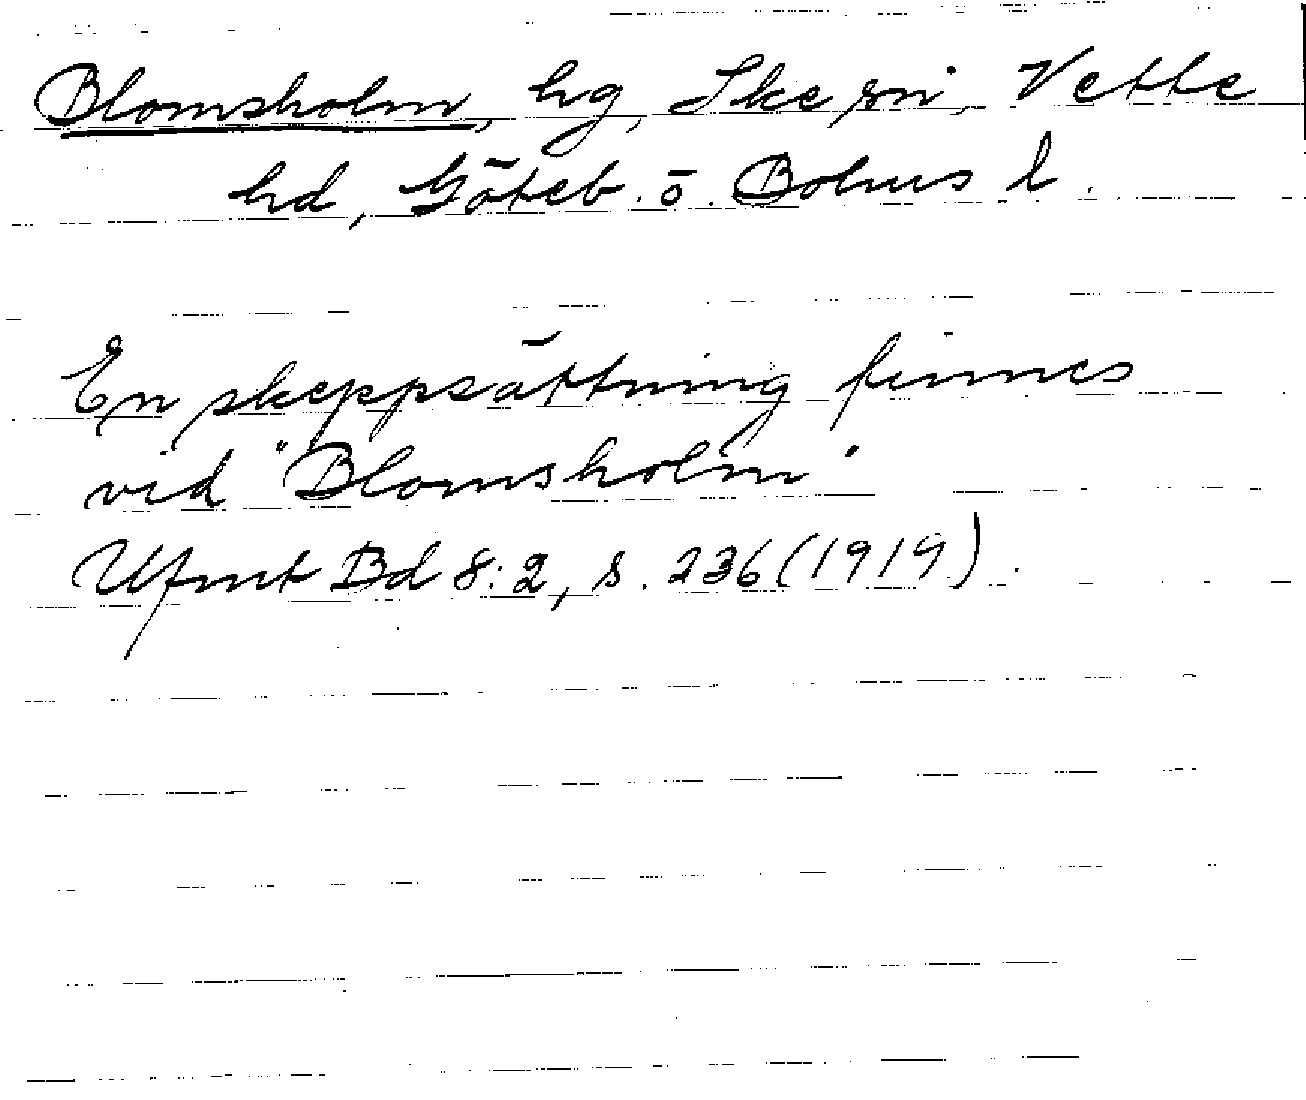 Blomsholm, hg, Skee sn, Vette
hd, Göteb. o. Bohus l.
En skeppsättning finnes
vid "Blomsholm"
Ufmt Bd 8:2, s. 236 (1919).